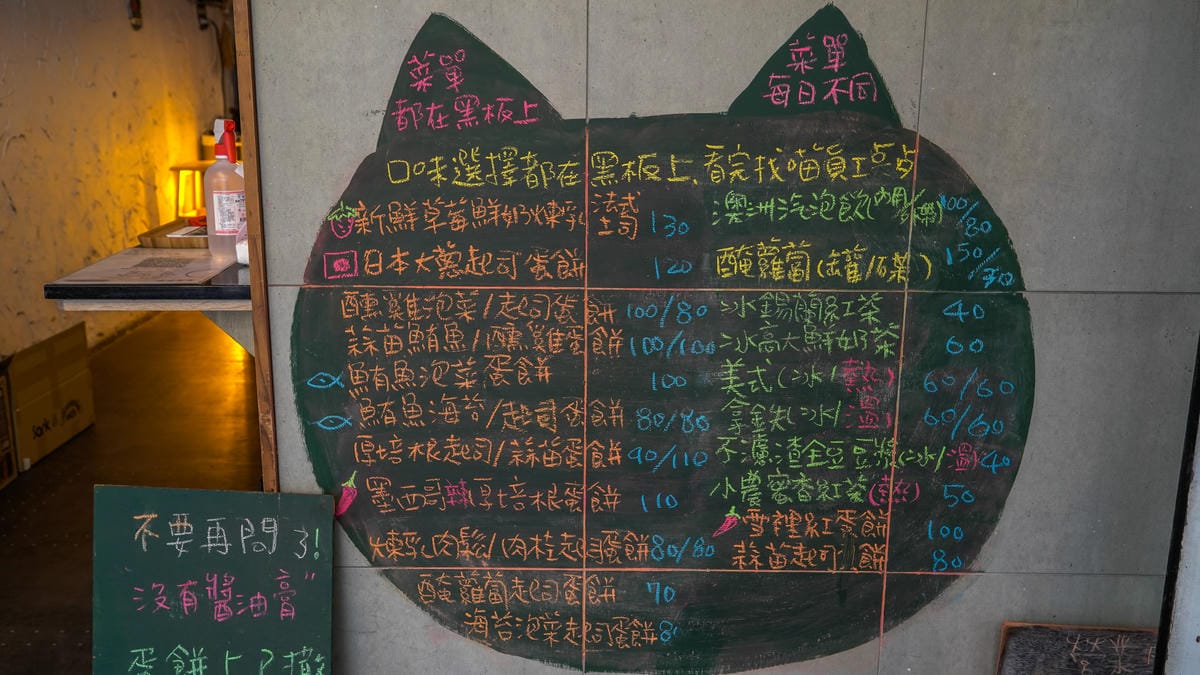 菜單
都在黑板上
菜單
每日不同
口味選擇都在黑板上,看完找喵員工點點
新鮮草莓鮮奶煉乳法式吐司 130
日本大蔥起司蛋餅 120
醺雞泡菜/起司蛋餅 100/80
蒜苗鮪魚/醺雞蛋餅 100/100
鮪魚泡菜蛋餅 100
鮪魚海苔/起司蛋餅 80/80
厚培根起司/蒜苗蛋餅 90/110
墨西哥辣厚培根蛋餅 110
煉乳肉鬆/肉桂起司蛋餅 80/80
醃蘿蔔起司蛋餅 70
海苔泡菜起司蛋餅
澳洲汽泡飲 100/80
醃蘿蔔(罐/碟) 150
冰錫蘭紅茶 40
冰高大鮮奶茶 60
美式(冰/熱) 60/60
拿鐵(冰/溫) 60/60
不濾渣全豆豆漿(冰/溫) 40
小農蜜香紅茶(熱) 50
雪裡紅蛋餅 100
蒜苗起司 餅 80
不要再問了!
沒有醬油膏"
蛋餅上